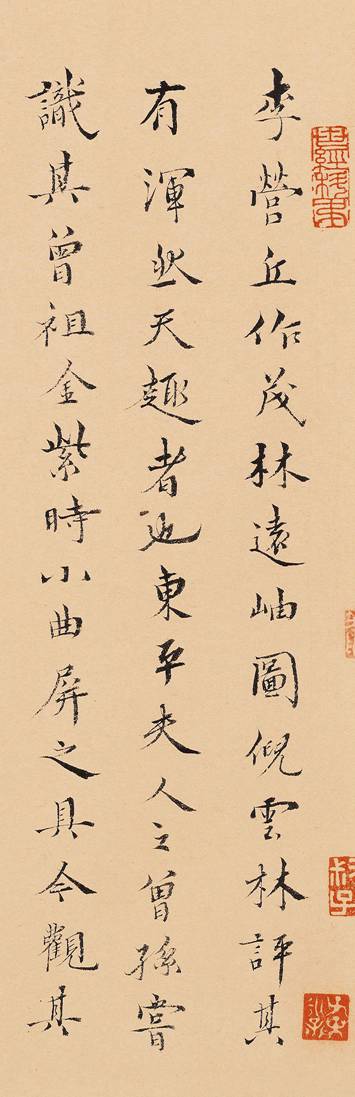 李營丘作茂林遠岫圖倪雲林評其
有渾然天趣者也東平夫人之曾孫嘗
識其曾祖金紫時小曲屏之具今觀其